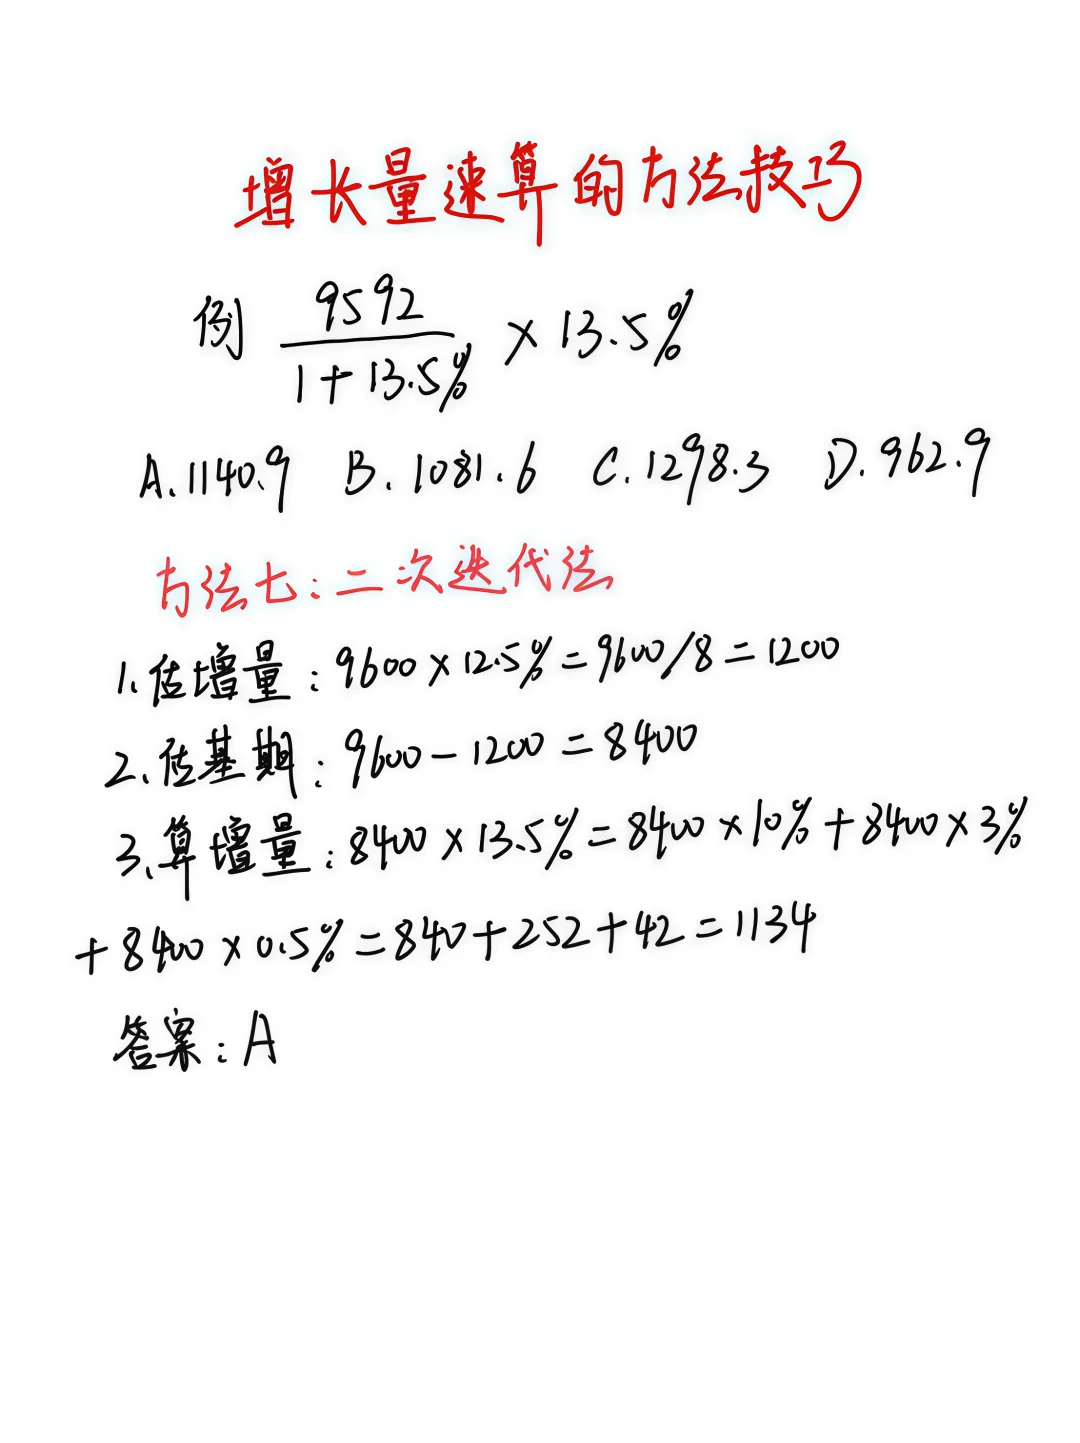 增长量速算的方法技巧
例 9592/(1+13.5%) × 13.5%
A.1140.9 B.1081.6 C.1298.3 D.962.9
方法七:二次迭代法
1.估增量:9600×12.5%=9600/8=1200
2.估基期:9600-1200=8400
3.算增量:8400×13.5%=8400×10%+8400×3%
+8400×0.5%=840+252+42=1134
答案:A